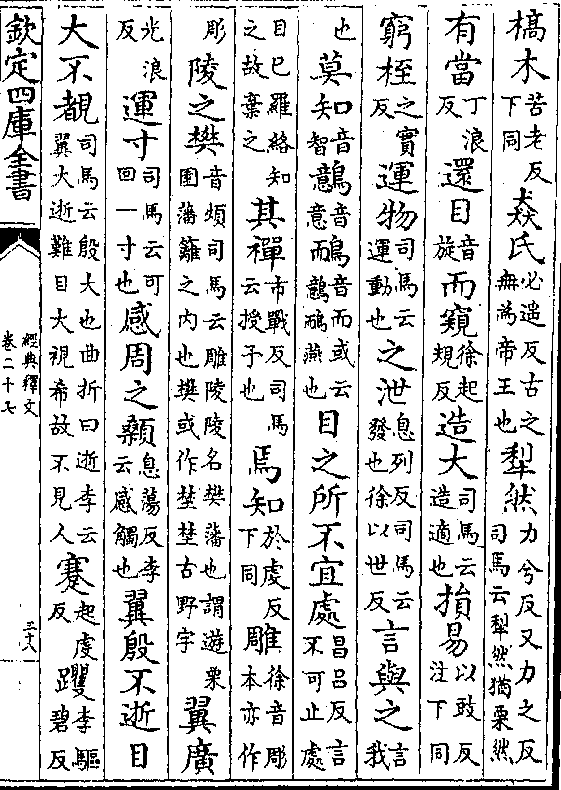 槁木苦老反下同猋氏必遥反古之無為帝王也犁然力兮反又力之反司馬云犁然猶栗然
有當丁浪反還目音旋而窺徐起規反造大司馬云造適也損易以豉反注下同
窮桎之實反運物司馬云運動也之泄息列反司馬云發也徐以世反言與之言我
也莫知音智鷾音意鳾音而或云鷾鳾燕也目之所不宜處昌呂反言不可止處
目已羅絡知之故棄之其禪市戰反司馬云授予也焉知於虔反下同雕徐音彫本亦作
彫陵之樊音煩司馬云雕陵陵名樊藩也謂遊栗園藩籬之内也樊或作埜埜古野字翼廣
光浪反運寸司馬云可回一寸也感周之顙息蕩反李云感觸也翼殷不逝目
大不覩司馬云殷大也曲折曰逝李云翼大逝難目大視希故不見人蹇起虔反躩李驅碧反
欽定四庫全書
經典釋文
卷二十七
三十八